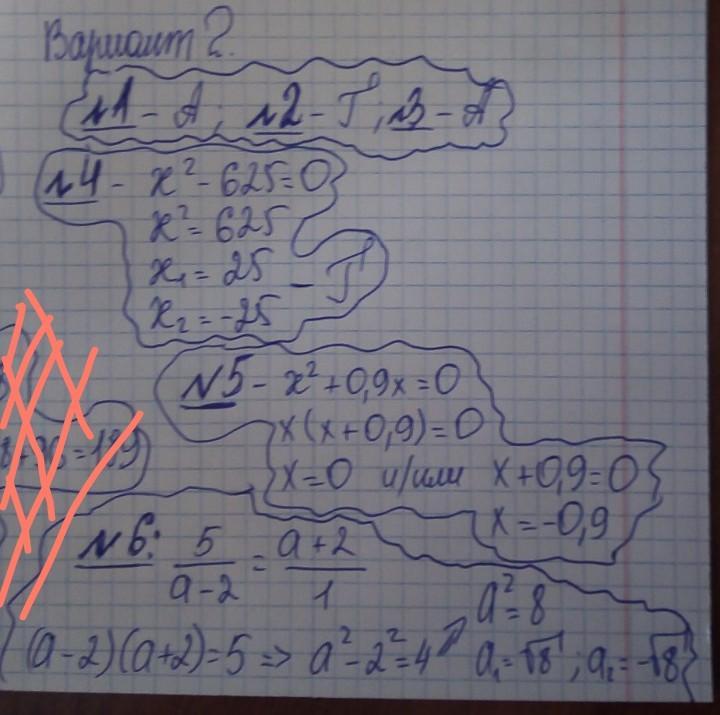 Вариант 2.
№1 - А; №2 - Г; №3 - А
№4 - x² - 625 = 0
x² = 625
x₁ = 25
x₂ = -25 - Г
№5 - x² + 0,9x = 0
x(x + 0,9) = 0
x = 0 и/или x + 0,9 = 0
x = -0,9
№6: 5/(a-2) = (a+2)/1
(a-2)(a+2) = 5 => a² - 2² = 4 => a² = 8
a₁ = √8; a₂ = -√8